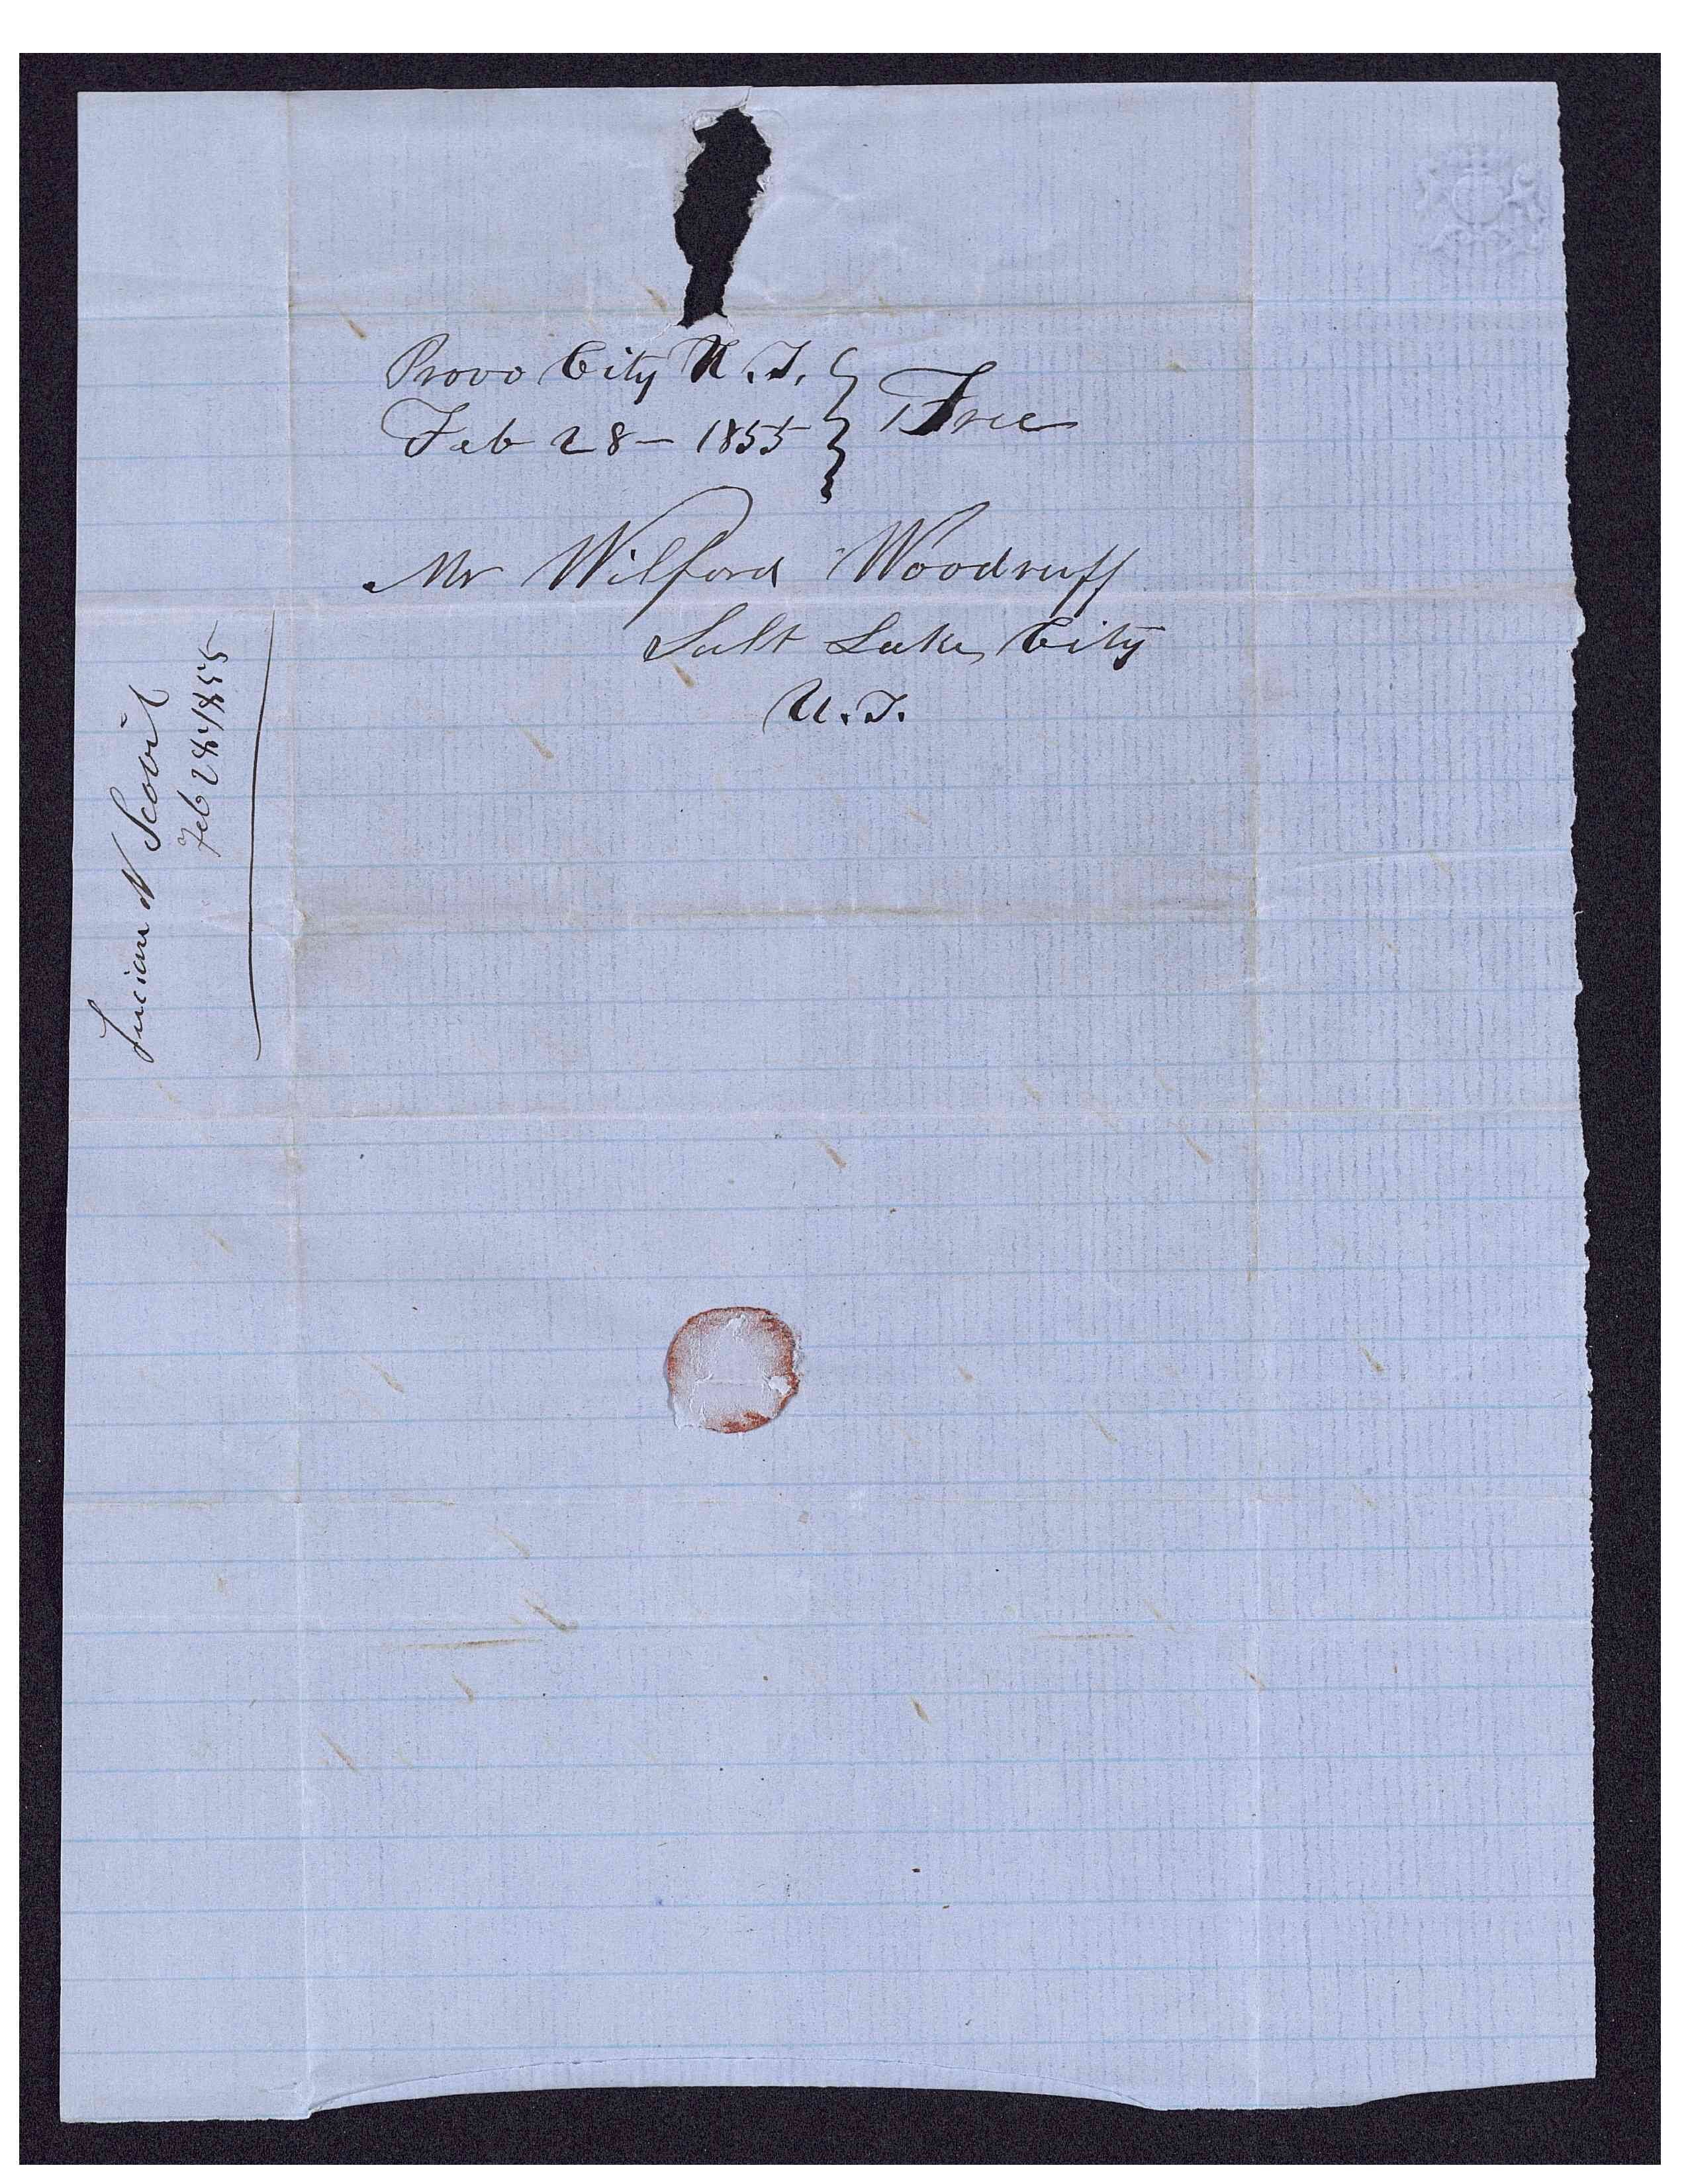 Provo City U.T. } Free
Feb 28 - 1855
Mr Wilford Woodruff
Salt Lake City
U.T.
Lucian N Scovil
Feb 28, 1855